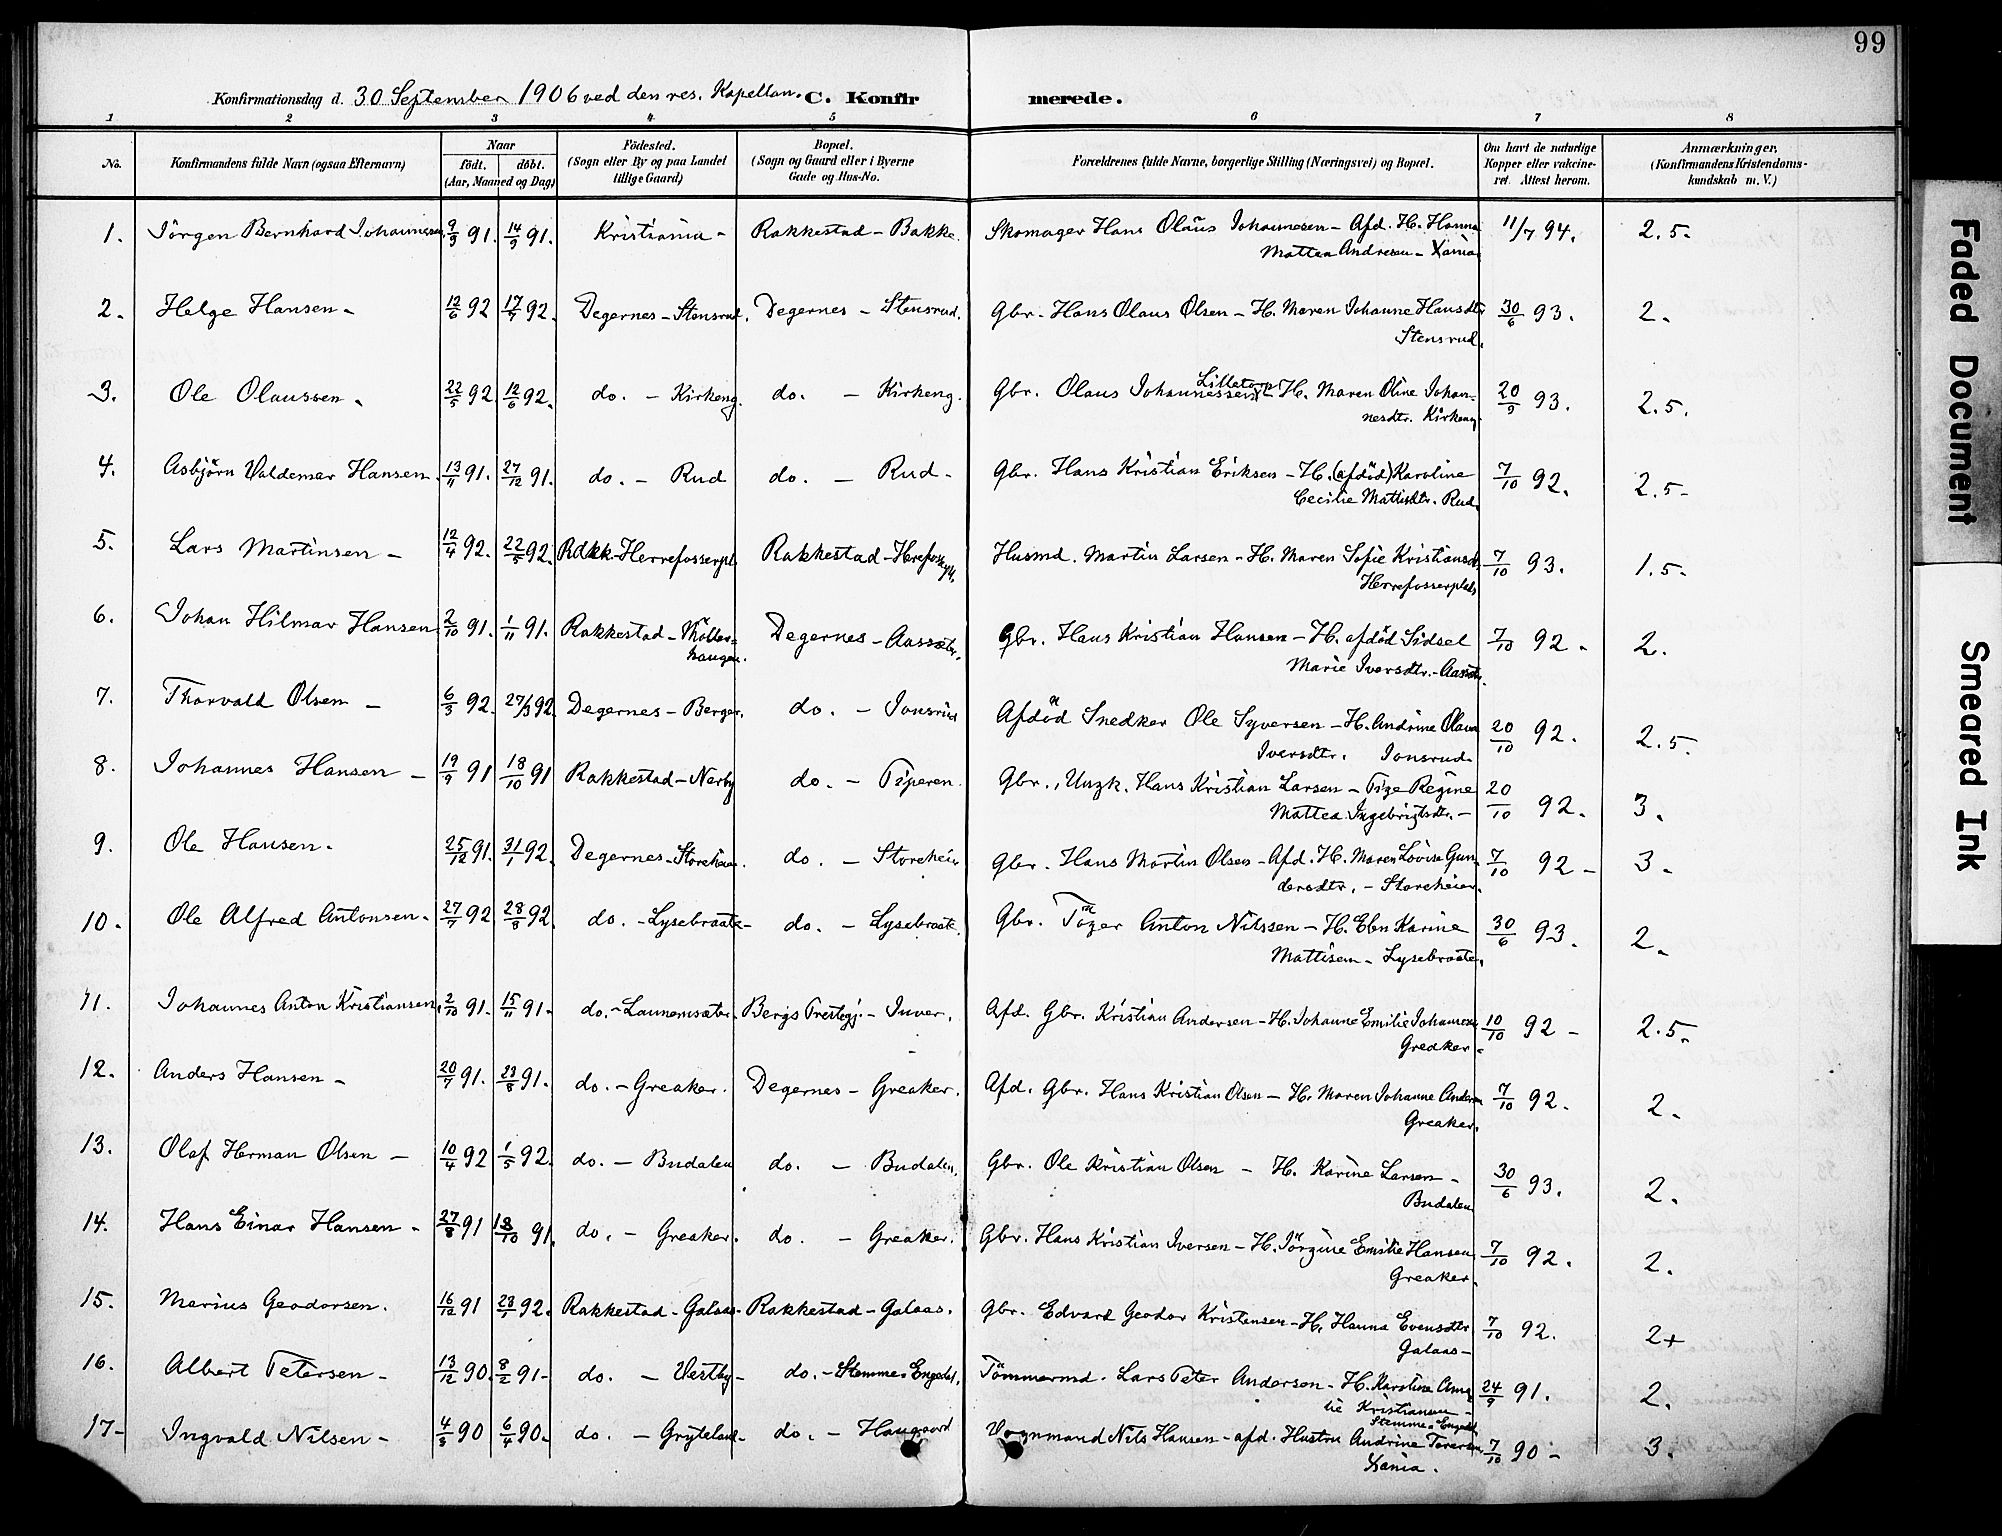 99
Konfirmationsdag d. 30 September 1906 ved den res. Kapellan. C. Konfirmerede.
1 2 3 4 5 6 7 8
No. Konfirmandens fulde Navn (ogsaa Efternavn) Naar födt. döbt. (Aar, Maaned og Dag) Födested. (Sogn eller By og paa Landet tillige Gaard) Bopæl. (Sogn og Gaard eller i Byerne Gade og Hus-No. Forældrenes fulde Navne, borgerlige Stilling (Næringsvei) og Bopæl. Om havt de naturlige Kopper eller vakcineret. Attest herom. Anmærkninger. (Konfirmandens Kristendomskundskab m. V.)
1. Jörgen Bernhard Johannesen 9/9 91. 14/9 91. Kristiania - Rakkestad - Bakke. Skomager Hans Olaus Johannesen - Afd. H. Hanna 11/7 94. 2.5.
Mattea Andresen - Xania
2. Helge Hansen - 12/6 92 17/7 92. Degernes - Stensrud. Degernes - Stensrud. Gbr. Hans Olaus Olsen - H. Maren Johanne Hansdtr 30/6 93. 2.
Stensrud.
3. Ole Olaussen. 22/5 92 12/6 92. do. - Kirkeng. do. - Kirkeng. Gbr. Olaus Johannessen - H. Maren Oline Johan- 20/9 93. 2.5.
nesdtr. Kirkeng.
4. Asbjörn Valdemar Hansen. 13/11 91. 27/12 91. do. - Rud do. - Rud - Gbr. Hans Kristian Eriksen - H. (afdöd) Karoline 7/10 92. 2.5-
Cecilie Mattisdtr. Rud.
5. Lars Martinsen - 12/4 92. 22/5 92. Rakk - Herrefosserpl. Rakkestad - Husmd. Martin Larsen - H. Maren Sofie Kristiansdt. 7/10 93. 1.5-
Herrefosserplads
6. Johan Hilmar Hansen 2/10 91. 1/11 91. Rakkestad - haugen. Degernes - Aassæter. Gbr. Hans Kristian Hansen - H. afdöd Sidsel 7/10 92. 2.
Marie Iversdtr. -
7. Thorvald Olsen - 6/3 92. 27/3 92. Degernes - Berger. do. - Jonsrud Afdöd Snedker Ole Syversen - H. Andrine Olava 20/10 92. 2.5.
Iversdtr. Jonsrud.
8. Johannes Hansen - 19/9 91 18/10 91 Rakkestad - Nærby do. - Tiperen. Gbr., Ungk. Hans Kristian Larsen - Pige Regine 20/10 92. 3.
Mattea Ingebrigtsdtr. -
9. Ole Hansen. 25/12 91. 31/1 92. Degernes - Storeheier. do. - Storeheier Gbr. Hans Martin Olsen - Afd. H. Maren Lovise Gun- 7/10 92 - 3.
dersdtr. - Storeheier.
10. Ole Alfred Antonsen. 27/7 92 28/8 92. do. - Lysebraate - do. - Lysebraate. Gbr. Töger Anton Nilssen - H. Elen Karine 30/6 93. 2.
Mattisen - Lysebraate.
11. Johannes Anton Kristiansen. 2/10 91. 15/11 91. do. - Launemsæter. Bergs Prestegj. - Afd. Gbr. Kristian Andersen - H. Johanne Emilie Johannesen 10/10 92 - 2.5.
Greaker.
12. Anders Hansen - 20/7 91. 23/8 91. do. - Greaker. Degernes - Greaker. Afd. Gbr. Hans Kristian Olsen - H. Maren Johanne Andersen 7/10 92. 2.
Greaker.
13. Olaf Herman Olsen - 10/4 92 1/5 92. do. - Budalen do. - Budalen. Gbr. Ole Kristian Olsen - H. Karine Larsen - 30/6 93. 2.
Budalen
14. Hans Einar Hansen - 27/8 91 18/10 91. do. - Greaker. do. - Greaker. Gbr. Hans Kristian Iversen - H. Jörgine Emilie Hansen 7/10 92. 2.
Greaker.
15. Marius Geodorsen. 16/12 91 23/1 92. Rakkestad - Galaas - Rakkestad - Galaas. Gbr. Edvard Geodor Kristensen - H. Hanna Evensdtr 7/10 92. 2+
Galaas -
16. Albert Petersen - 13/12 90. 8/2 91 - do. - Vestby - do. - Stemme. Engedal. Tömmermd. Lars Peter Andersen - H. Karoline Ama- 24/9 91. 2.
lie Kristiansen -
Stemme. Engedal
17- Ingvald Nilsen - 4/3 90 6/4 90. do. - Gryteland - do. - Haugaard Vognmand Nils Hansen - afd. Hustru Andrine Toresen 7/10 90 - 3.
Xania.
Faded Document
Smeared Ink